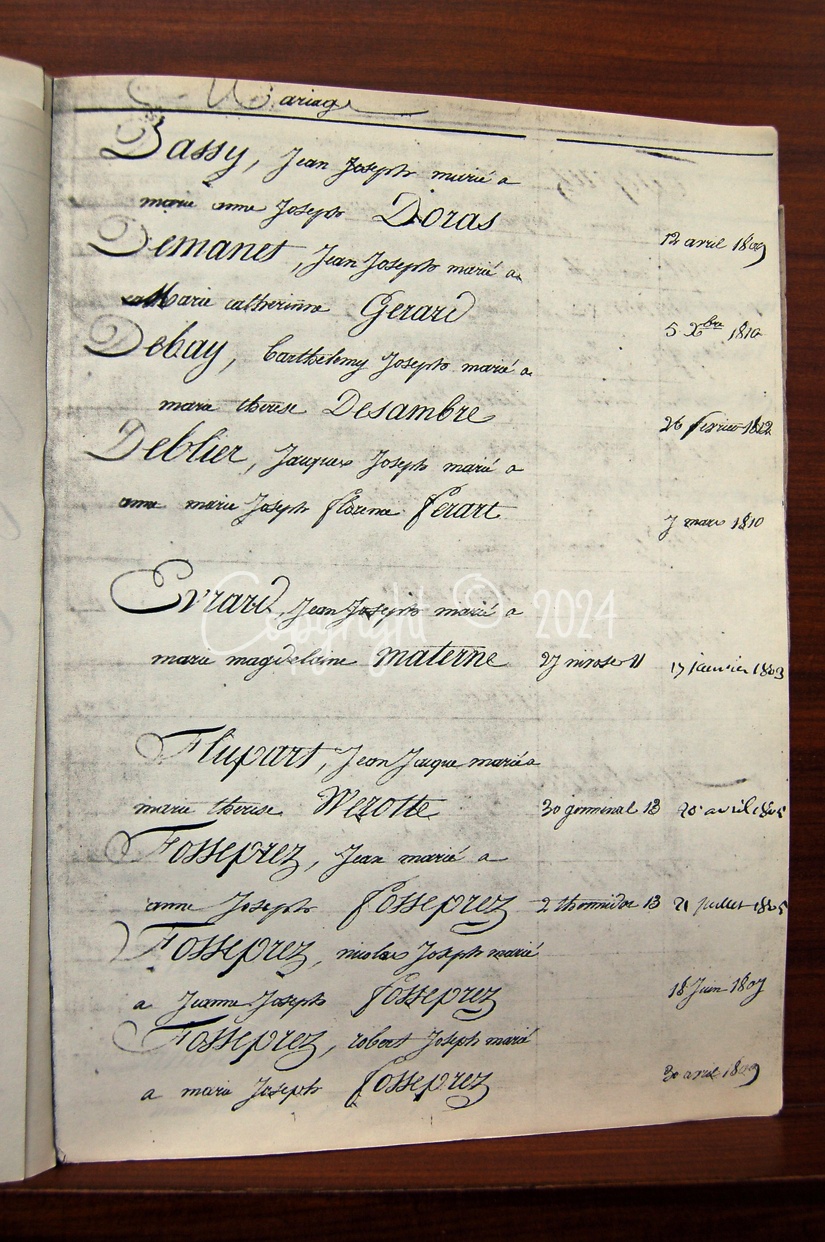 Mariage
Dassy, Jean Joseph marié a
marie anne Joseph Doras
12 avril 1809
Demanet, Jean Joseph marié a
Marie catherinne Gerard
5 Xbre 1810
Debay, barthelemy Joseph marié a
marie therese Desambre
26 fevrier 1812
Deblier, Jacques Joseph marié a
anne marie Joseph florence ferart
7 mars 1810
Evrard, Jean Joseph marié a
marie magdeleine materne 27 nivose 11 17 janvier 1803
Copyright © 2024
Flupart, Jean Jacque marié a
marie therese Wezotte 30 germinal 13 20 avril 1805
Fosseprez, Jean marié a
anne Joseph fosseprez 2 thermidor 13 21 juillet 1805
Fosseprez, nicolas Joseph marié
a Jeanne Joseph fosseprez 18 Juin 1807
Fosseprez, robert Joseph marié
a marie Joseph fosseprez 30 avril 1809